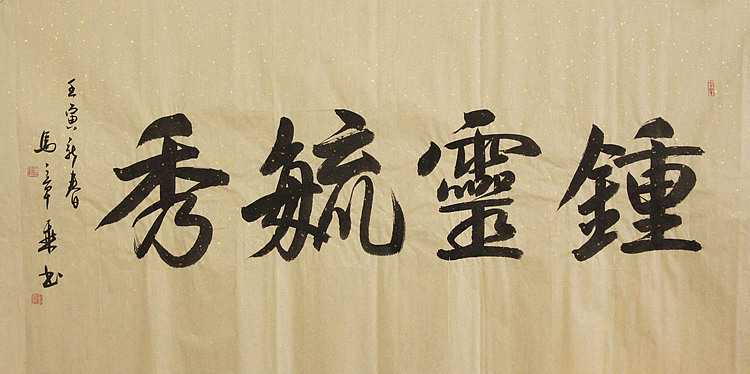 鍾靈毓秀
壬寅新春
馬章乘书